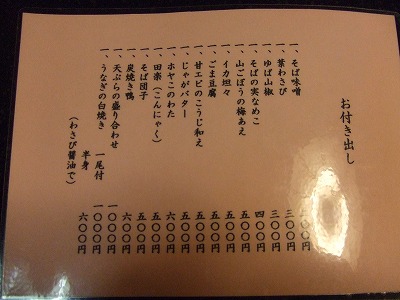 お付き出し
一、そば味噌 〇〇円
一、葉わさび 三〇〇円
一、ゆば山椒 三〇〇円
一、そばの実なめこ 四〇〇円
一、山ごぼうの梅あえ 五〇〇円
一、イカ坦々 五〇〇円
一、ごま豆腐 五〇〇円
一、甘エビのこうじ和え 五〇〇円
一、じゃがバター 五〇〇円
一、ホヤこのわた 六〇〇円
一、田楽（こんにゃく） 五〇〇円
一、そば団子 五〇〇円
一、炭焼き鴨 六〇〇円
一、天ぷらの盛り合わせ 一〇〇〇円
一、うなぎの白焼き 一尾付 一〇〇〇円
半身 六〇〇円
（わさび醤油で）